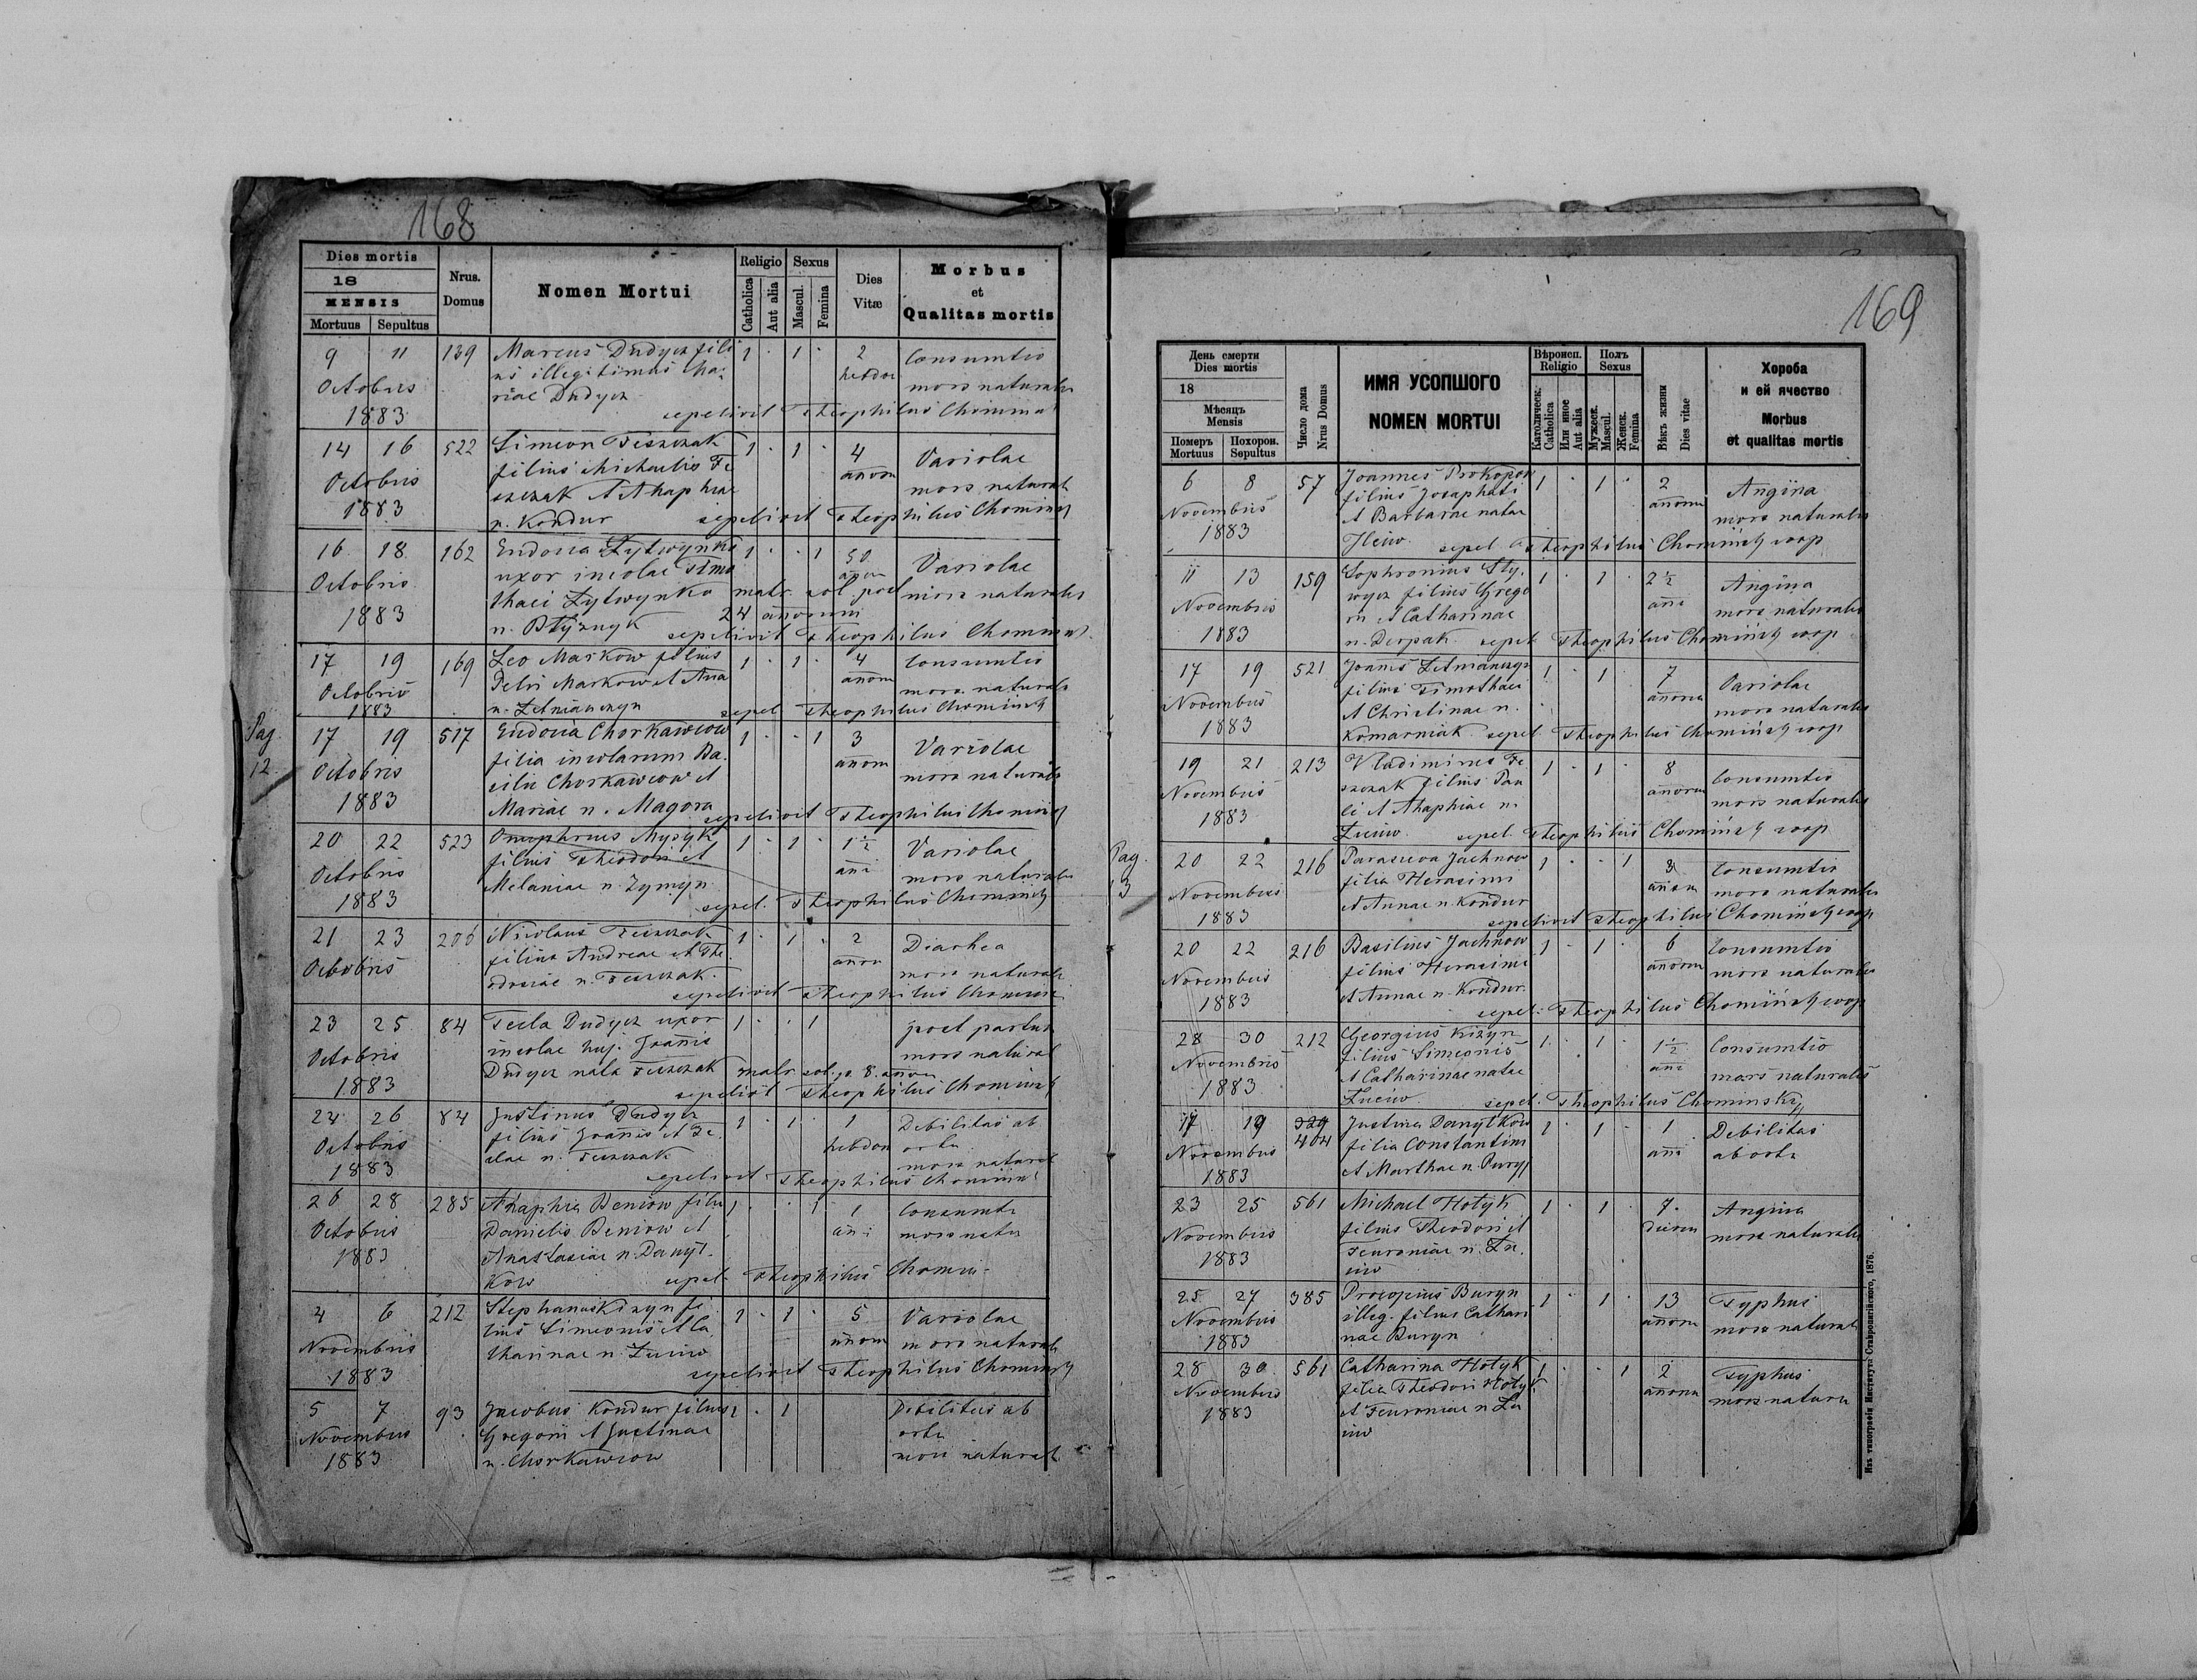 168
Dies mortis
18
MENSIS
Mortuus Sepultus
Nrus. Domus
Nomen Mortui
Religio
Catholica
Aut alia
Sexus
Mascul.
Femina
Dies Vitæ
Morbus
et
Qualitas mortis
9 11 139 Marcus Dudycz fili 1 · 1 · 2 Consumtio
Octobris us illegitimus Ma: hebdom mors naturalis
riae Dudycz
1883 sepelivit Theophilus
14 16 522 Simeon Feszczak 1 · 1 · 4 Variolae
Octobris filius Michaelis Fe annorum mors natural
szczak et Ahaphiae
1883 n. Kondur sepelivit Theophilus Chominsky
16 18 162 Eudocia Lytwynko 1 · · 1 50 Variolae
Octobris uxor incolae Timo annor
thaei Lytwynko matr. sol. post mors naturalis
1883 24 annorum
n. sepelivit Theophilus
17 19 169 Leo Markow filius 1 · 1 · 4 Consumtio
Octobris Petri Markow et Anna annorum mors naturalis
1883 n. Letniańczyn sepel Theophilus Chominsky
Pag 12
17 19 517 Eudocia Chorkawciow 1 · · 1 3 Variolae
Octobris filia incolarum Ba annorum mors naturalis
silii Chorkawciow et
1883 Mariae n. Magora sepelivit Theophilus Chominsky
20 22 523 Onuphrius Mysyk 1 · 1 · 1½ Variolae
Octobris filius Theodori et anni mors naturalis
1883 Melaniae n. Zymyn
sepel. Theophilus Chominsky
21 23 206 Nicolaus Feszczak 1 · 1 · 2 Diarhea
Octobris filius Andreae et The annor mors naturali
odosiae n. Feszczak
sepelivit Theophilus
23 25 84 Tecla Dudycz uxor 1 · · 1 post partum
Octobris incolae huj. Joannis mors natural
1883 Dudycz nata Feszczak matr. sol. p. 8. annor
sepelivit Theophilus Chominsky
24 26 84 Justinus Dudycz 1 · 1 · 1 Debilitas ab
Octobris filius Joannis et Te hebdom ortu
1883 clae n. Feszczak mors natural
sepelivit Theophilus
26 28 285 Ahaphia Beniow filia 1 · · 1 1 Consumtio
Octobris Danielis Beniow et anni mors natur
1883 Anastasiae n. Danył
kow sepel Theophilus
4 6 212 Stephanus Kizyn fi 1 · 1 · 5 Variolae
Novembris lius Simeonis et Ca annorum mors naturalis
1883 tharinae n. Łuciw
sepelivit Theophilus Chominsky
5 7 93 Jacobus Kondur filius 1 · 1 Debilitas ab
Novembris Gregorii et Justinae ortu
1883 n. Chorkawciow mors natural
169
День смерти
Dies mortis
18
Мѣсяцъ
Mensis
Померъ Похорон.
Mortuus Sepultus
Число дома
Nrus Domus
ИМЯ УСОПШОГО
NOMEN MORTUI
Вѣроисп.
Religio
Католическ.
Catholica
Или иное
Aut alia
Полъ
Sexus
Мужеск.
Mascul.
Женск.
Femina
Вѣкъ жизни
Dies vitae
Хороба
и ей ячество
Morbus
et qualitas mortis
6 8 57 Joannes Prokopow 1 · 1 · 2 Angina
Novembris filius Josaphati annorum mors naturalis
et Barbarae natae
1883 Ilciw. sepel Theophilus Chomińsky coop
11 13 159 Sophronius 1 · 1 · 2½ Angina
Novembris filius Grego anni mors naturalis
rii et Catharinae
1883 n. Derpak sepel Theophilus Chomińsky coop
17 19 521 Joannes Letniańczyn 1 · 1 7 Variolae
Novembris filius Timothaei annorum mors naturalis
et Christinae n.
1883 Komarniak sepel Theophilus Chomińsky coop
19 21 213 Vladimirus Fe 1 · 1 · 8 Consumtio
Novembris szczak filius Pau annorum mors naturalis
1883 li et Ahaphiae n.
Łuciw. sepel Theophilus Chomińsky coop
Pag. 13
20 22 216 Parasceva Jachnow 1 · · 1 3 Consumtio
Novembris filia Herasimi annorum mors naturalis
1883 et Annae n. Kondur
sepelivit Theophilus Chomińsky coop
20 22 216 Basilius Jachnow 1 · 1 · 6 Consumtio
Novembris filius Herasimi annorum mors naturalis
1883 et Annae n. Kondur
sepel. Theophilus Chomińsky coop.
28 30 212 Georgius Kizyn 1 · 1 · 1½ Consumtio
Novembris filius Simeonis anni mors naturalis
1883 et Catharinae natae
Łuciw sepel. Theophilus Chominsky
17 19 329 404 Justina Danyłkow 1 · 1 · 1 Debilitas
Novembris filia Constantini anni ab ortu
1883 et Marthae n.
23 25 561 Michael Hołyk 1 · 1 · 7. Angina
Novembris filius Theodori et dierum mors naturalis
1883 Feuroniae n. Łu
ciw
25 27 385 Procopius Buryn 1 · 1 · 13 Typhus
Novembris illeg. filius Cathari annorum mors natural
1883 nae Buryn
28 30 561 Catharina Hołyk 1 · · 1 2 Typhus
Novembris filia Theodori Hołyk annorum mors natura
1883 et Feuroniae n Łu
ciw
Изъ типографіи Института Ставропигійского, 1876.